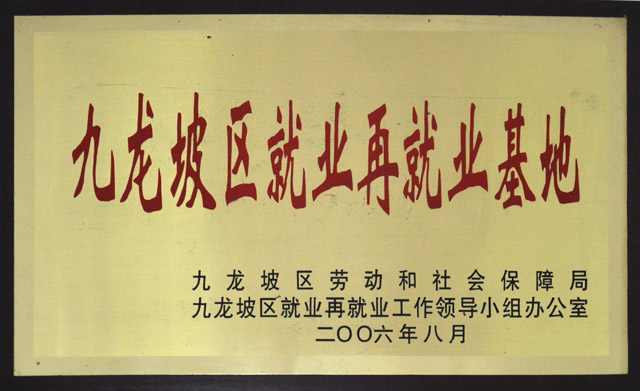 九龙坡区就业再就业基地
九龙坡区劳动和社会保障局
九龙坡区就业再就业工作领导小组办公室
二〇〇六年八月